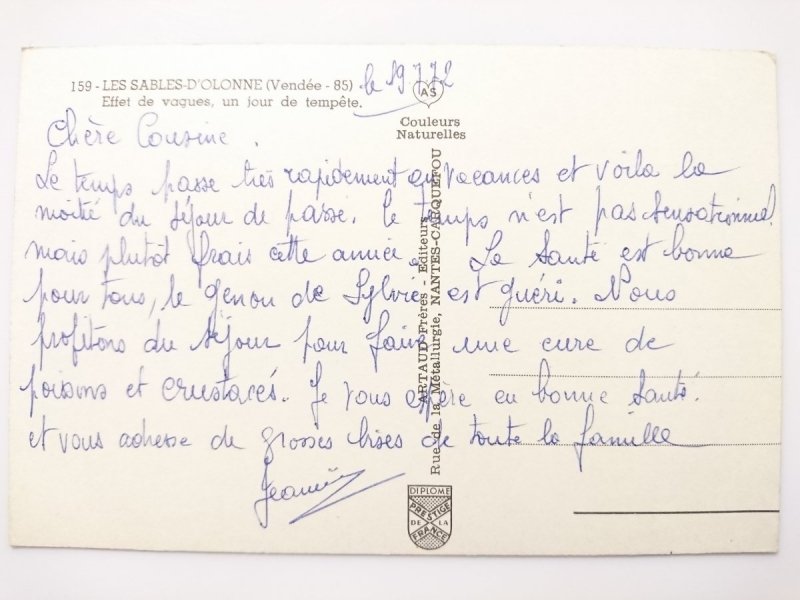 159 - LES SABLES-D'OLONNE (Vendée - 85)
Effet de vagues, un jour de tempête.
le 19 7 72
AS
Couleurs
Naturelles
Chère Cousine.
Le temps passe très rapidement en vacances et voilà la
moitié du séjour de passé. le temps n'est pas sensationnel
mais plutôt frais cette année. La santé est bonne
pour tous, le genou de Sylvie est guéri. Nous
profitons du séjour pour faire une cure de
poissons et crustacés. Je vous espère en bonne santé.
et vous adresse de grosses bises de toute la famille
ARTAUD Frères - Editeurs
Rue de la Métallurgie, NANTES-CARQUEFOU
DIPLOME
PRESTIGE
DE LA
FRANCE